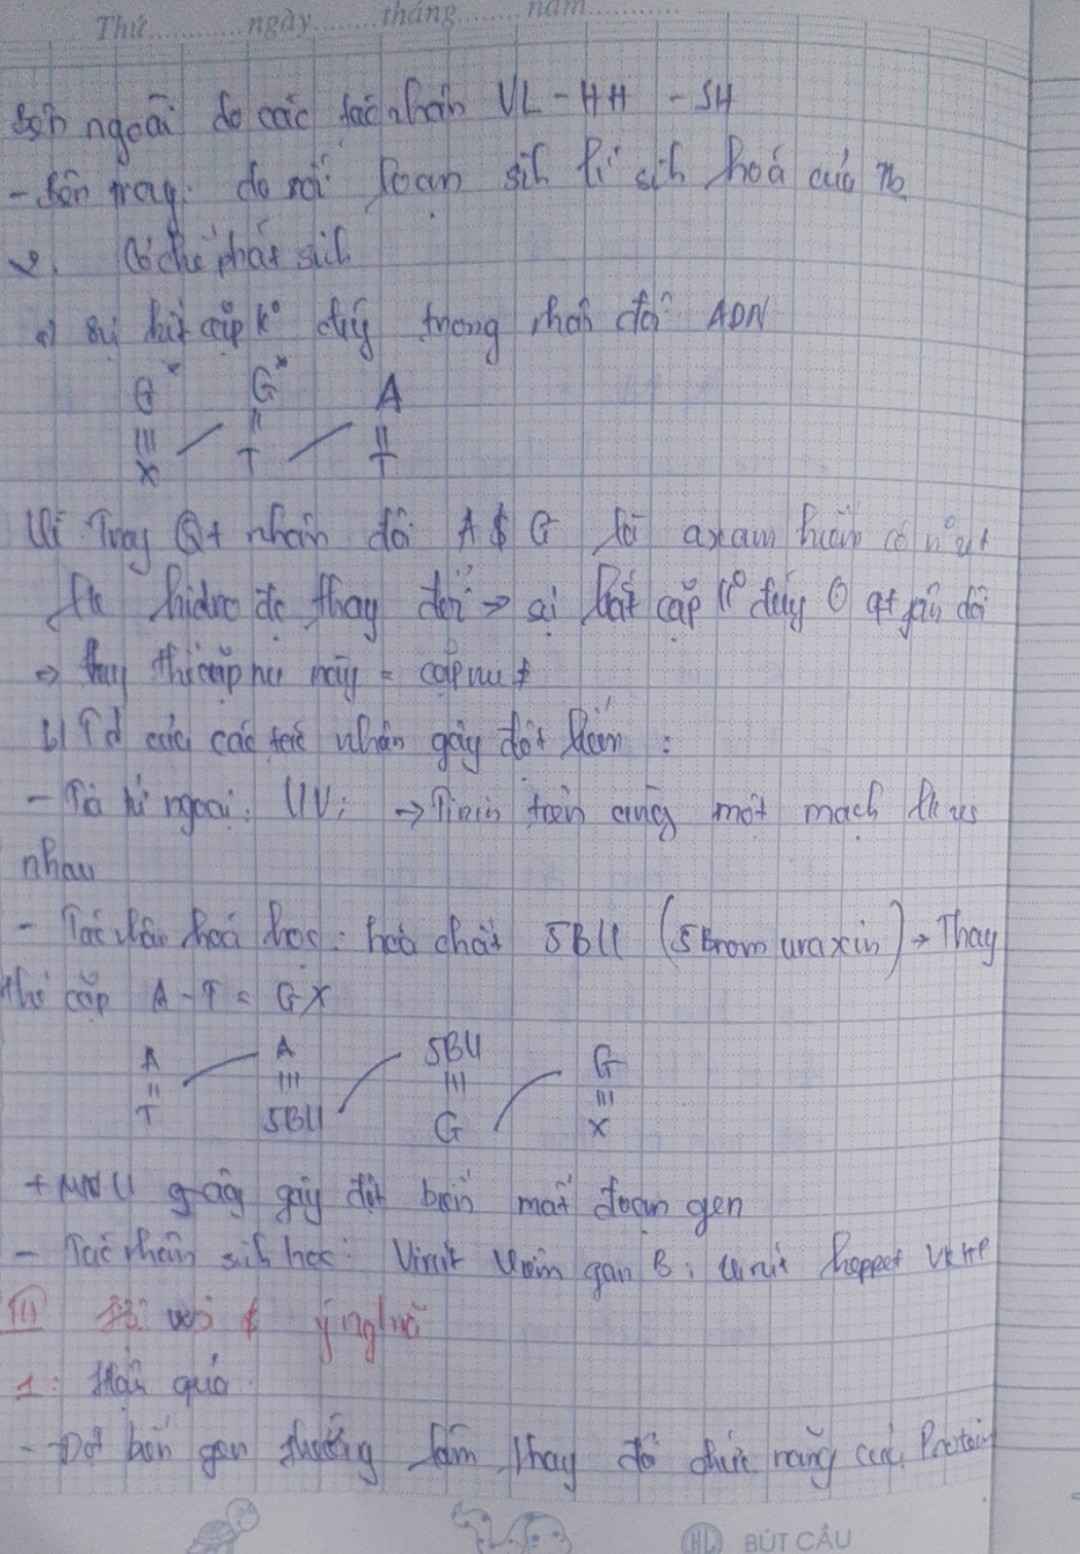 Thứ ngày tháng năm
Bên ngoài do các tác nhân VL - HH - SH
- Bên trog: do rối loạn sih lí sih hoá của Tb
2. Cơ chế phát sih
a) Sự kết cặp k° đúg trong nhân đôi ADN
G* G* A
X T T
Vì Trog Qt nhân đôi A $ G
lk hidro đc thay đổi → sự kết cặp k° đúg
→ thay thế cặp nu này = cặp nu ≠
b) Td của các tác nhân gây đột biến :
- Tia tử ngoại: UV: → Timin trên cùng một mạch lk vs
nhau
- Tác nhân hoá học: hoá chất 5BU (5 Brom uraxin) → Thay
thế cặp A - T = GX
A A 5BU G
T 5BU G X
+ gây đột biến mất đoạn gen
- Tác nhân sih học: Virút viêm gan B, virút
III ý nghĩa
1: Hậu quả
- Đột biến gen thường làm thay đổi chức năng của Protein
HL BÚT CÂU